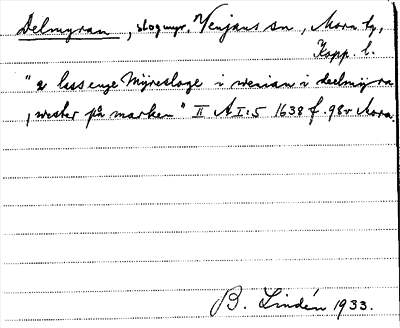 Delmyran, slogmyr, Venjans sn, Mora tg,
Kopp. l.
"2 lass enge Myreslage i weniam i deelmijra
, wester på marken" II A I:5 1638 f. 98v Mora.
B. Lindén 1933.